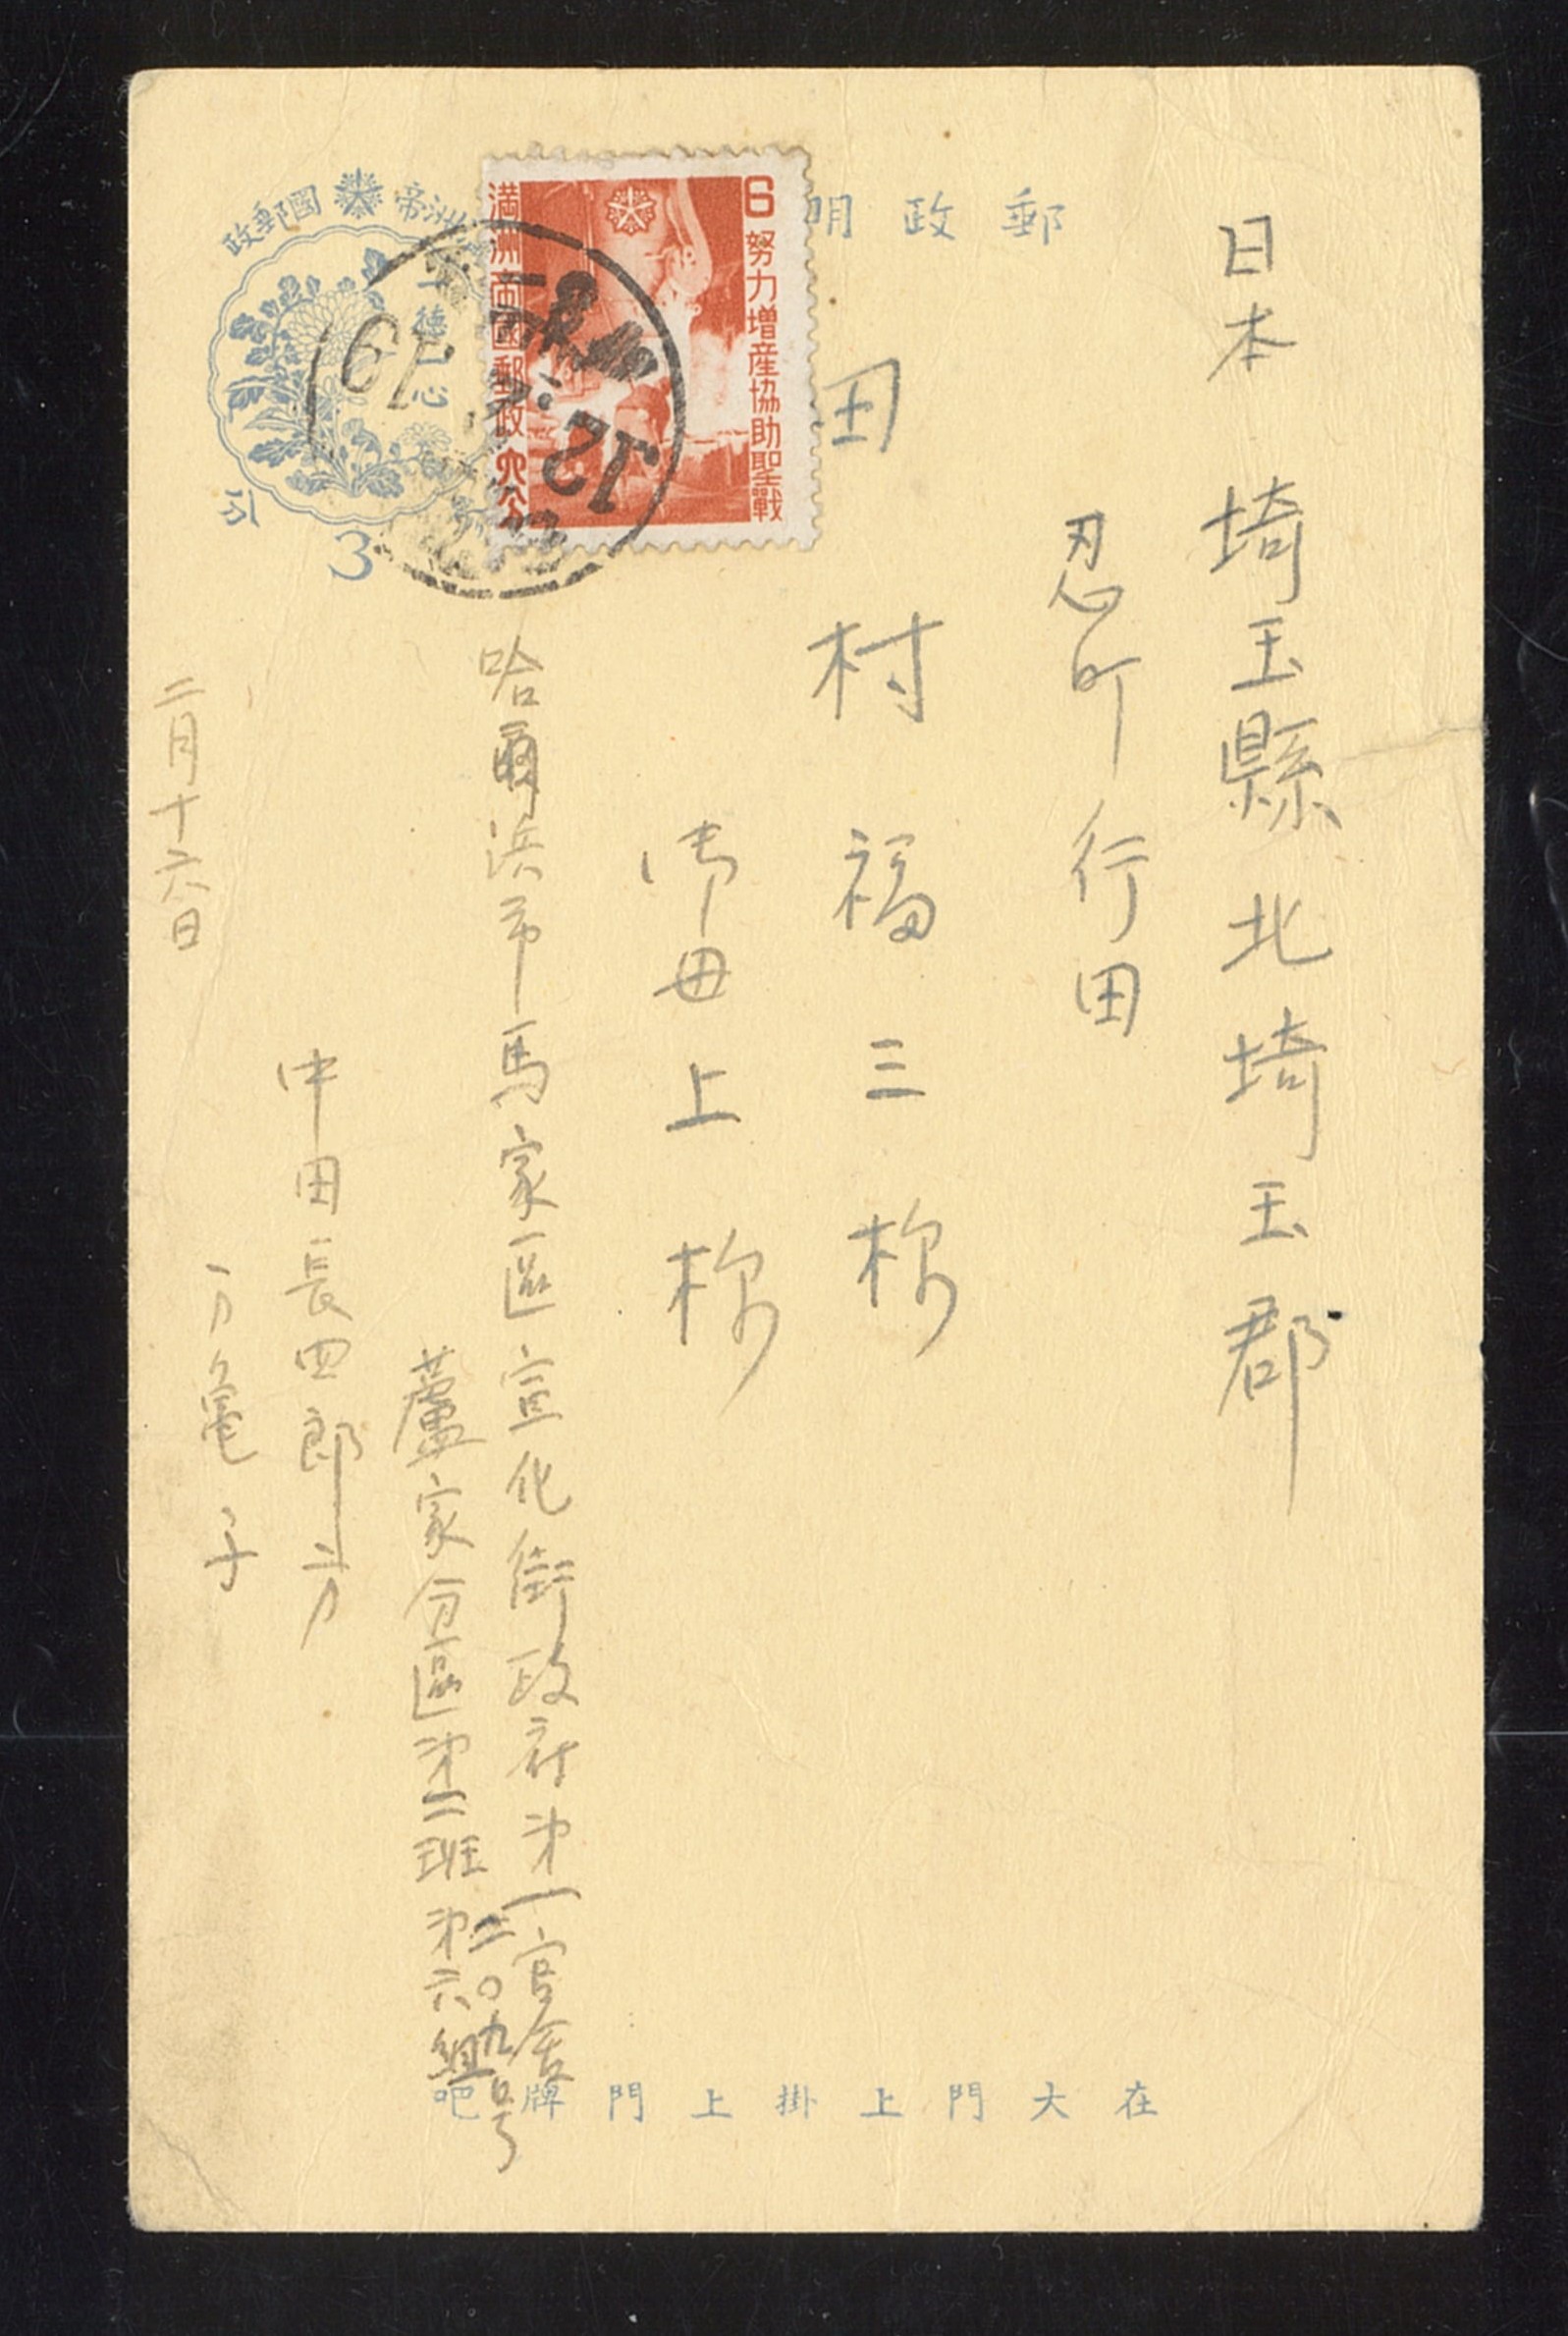 日本 埼玉縣北埼玉郡
忍町行田
田村福三様
御母上様
哈爾浜市馬家區宣化街政府第一官舎
三〇九号
蘆家分區第二班第六組
中田長四郎方
亀子
二月十六日
郵政明
政郵國 帝洲
徳一心
3
分
6
努力増産協助聖戰
満洲帝國郵政
六分
19
12
在大門上掛上門牌吧